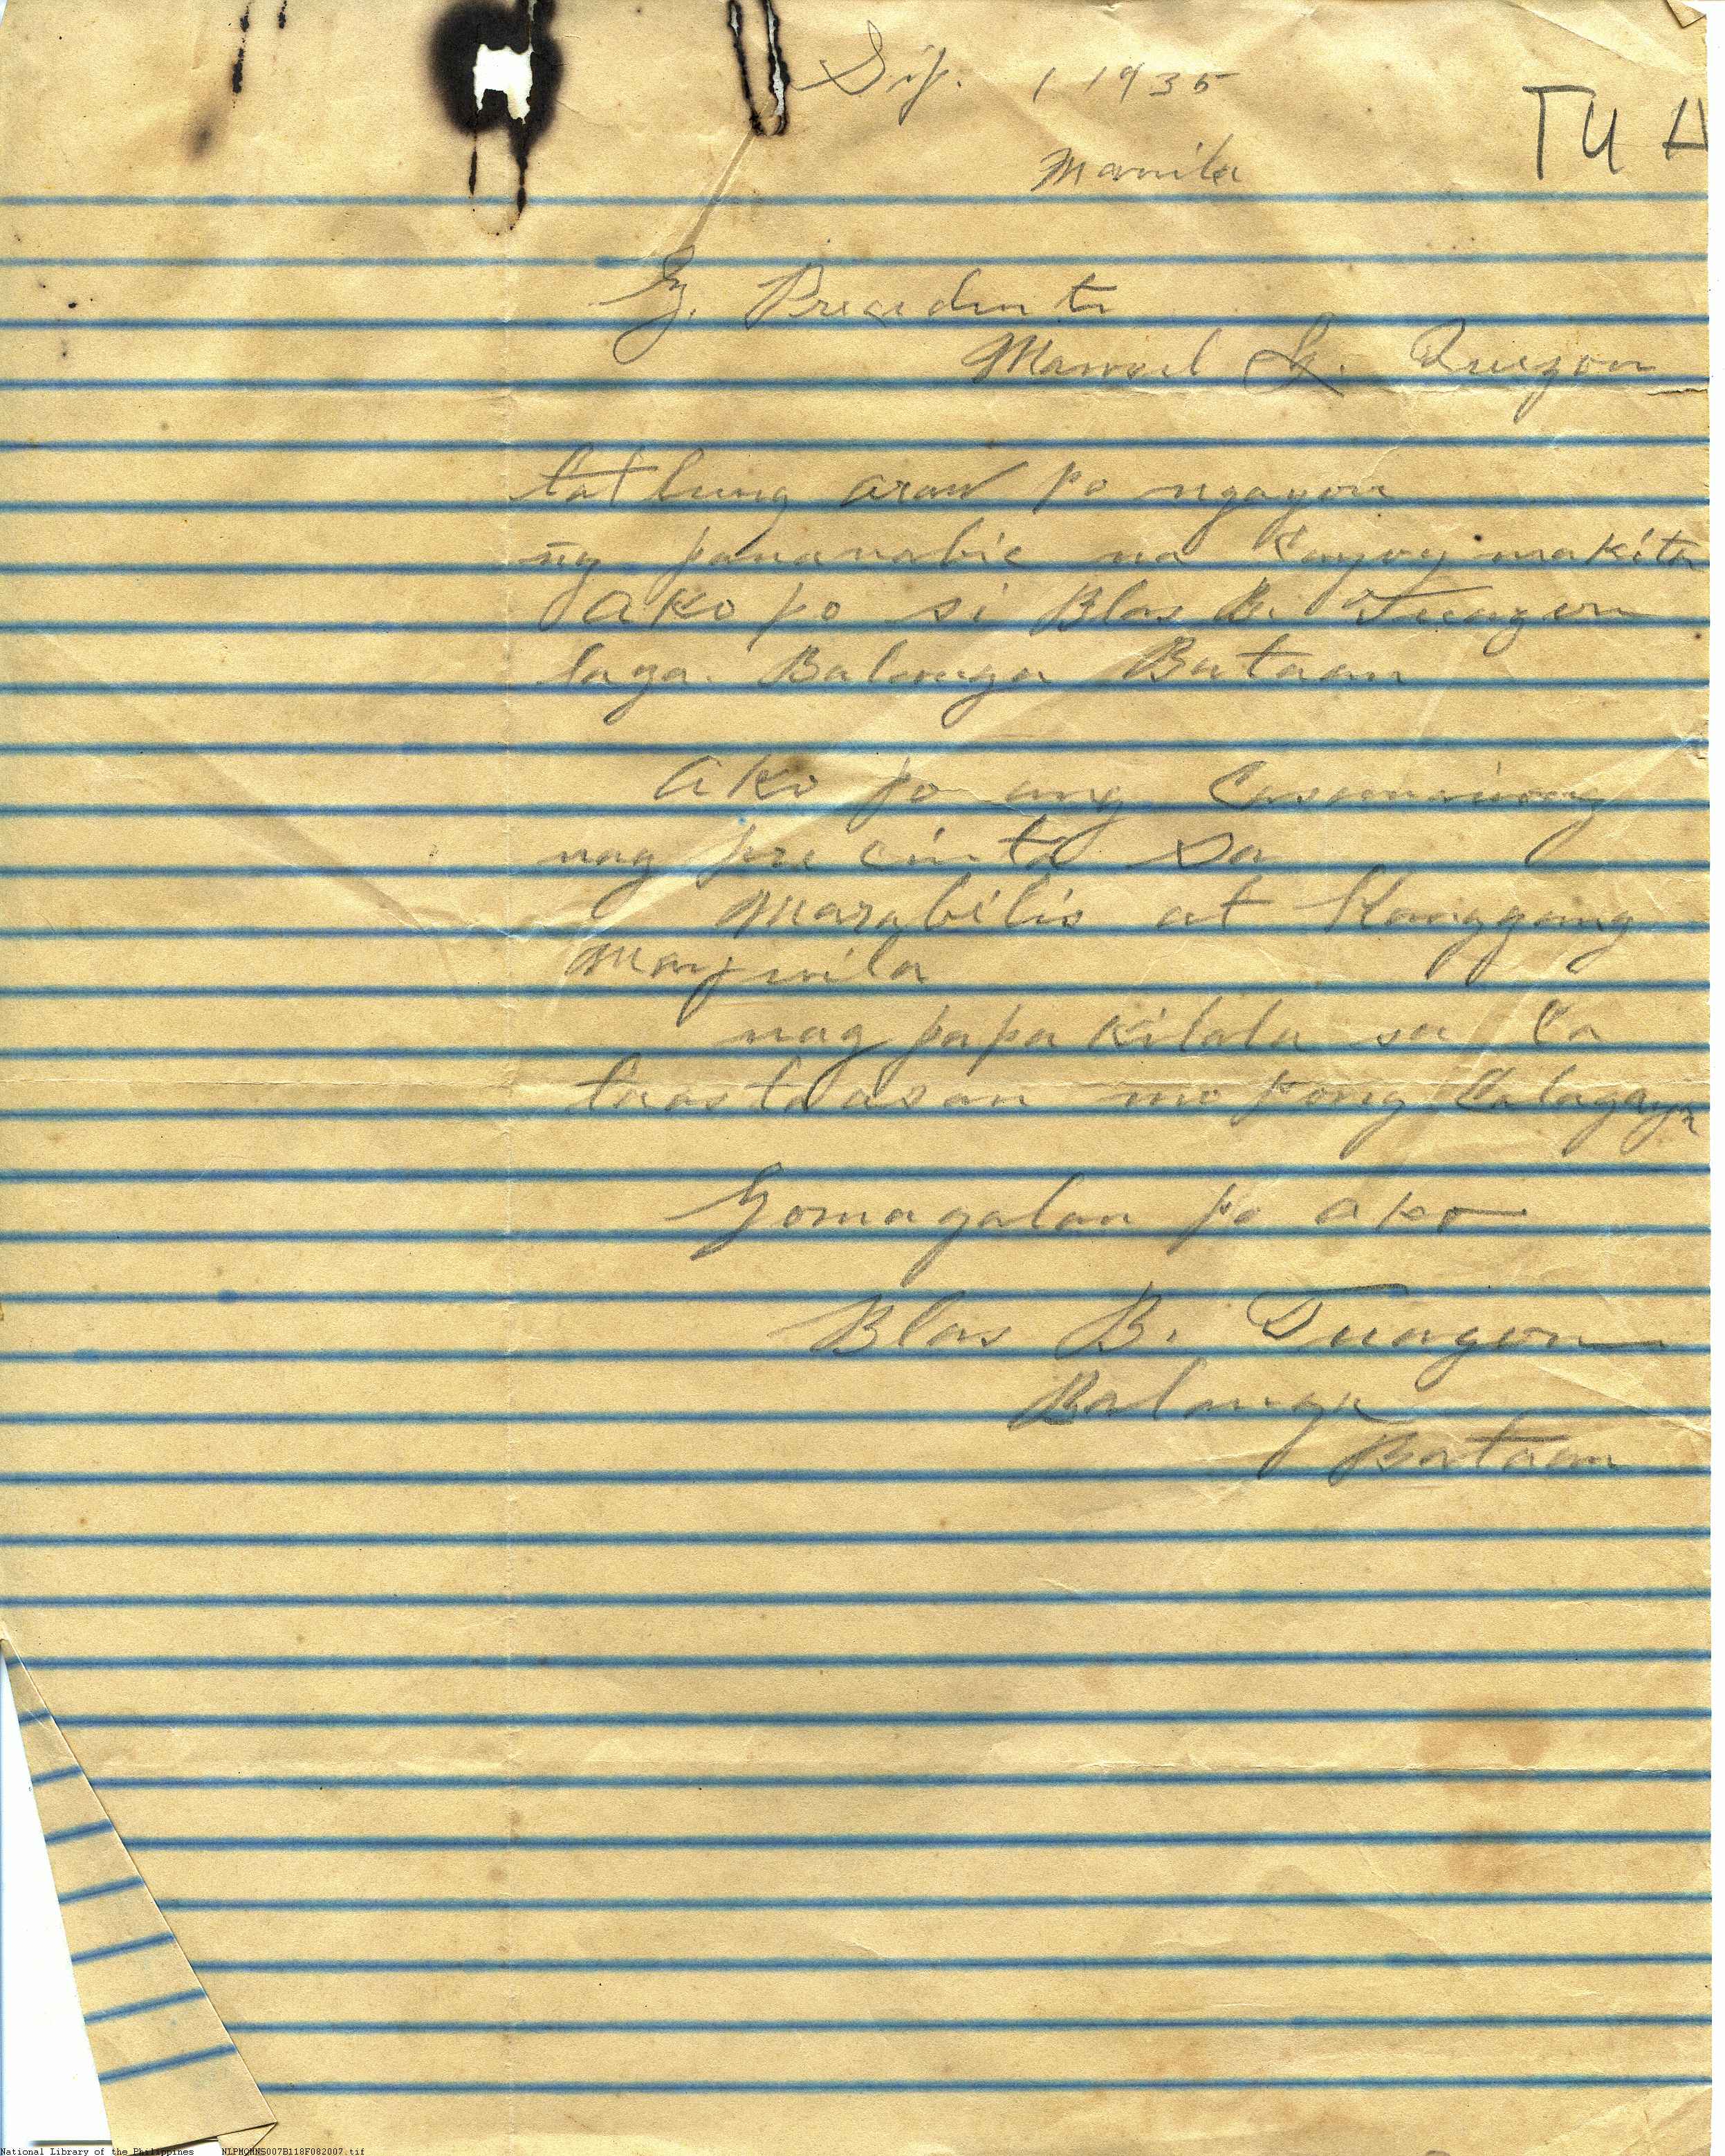 Sip. 1 1935
TU
Manila
G. Precidinti
Manuel L. Quezon
tatlung araw po ngayon
ng pananabic na Cayoy makita
Ako po si Blas B. Tuazon
taga. Balanga Bataan
Ako po ang Casamaiong
nag pre cinta sa
Marabilis at Hanggang
Maynila
nag papa Kilala sa Ca
taastaasan mo pong Calagayn
Gomagalan po ako
Blas B. Tuazon
Balanga
Bataan
National Library of the Philippines NLPMQMNS007B118F082007.tif